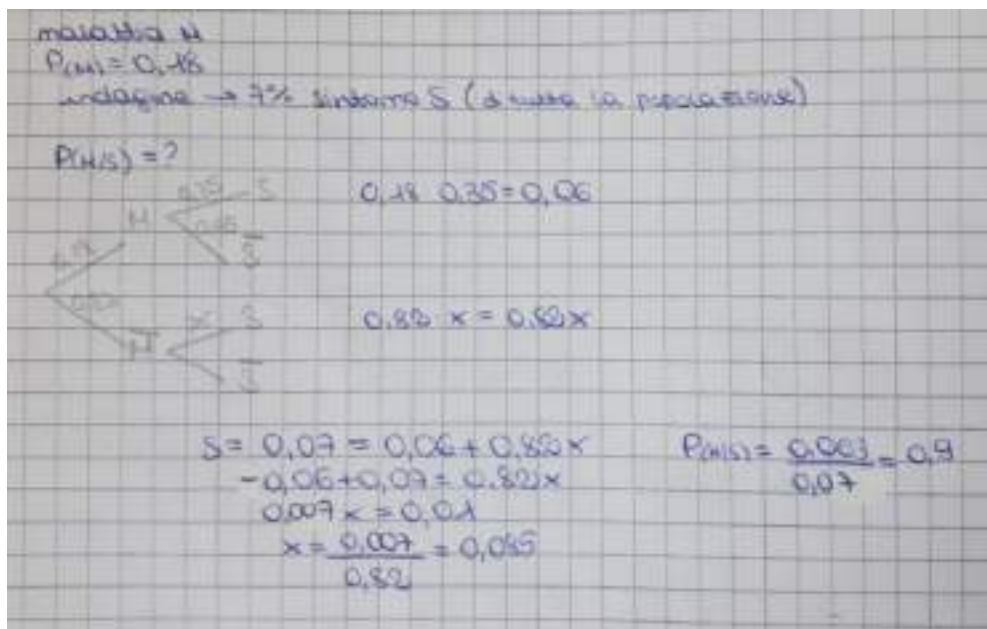 malattia M
P(M) = 0,18
indagine → 7% sintomo S (di tutta la popolazione)
P(M/S) = ?
0,35 S
M 0,65
0,18 S̅
0,18 0,35 = 0,06
0,82
x S
M̅
S̅
0,82 x = 0,82x
S = 0,07 = 0,06 + 0,82x
-0,06+0,07 = 0,82x
0,007x = 0,01
x = 0,007 / 0,82 = 0,085
P(M/S) = 0,063 / 0,07 = 0,9